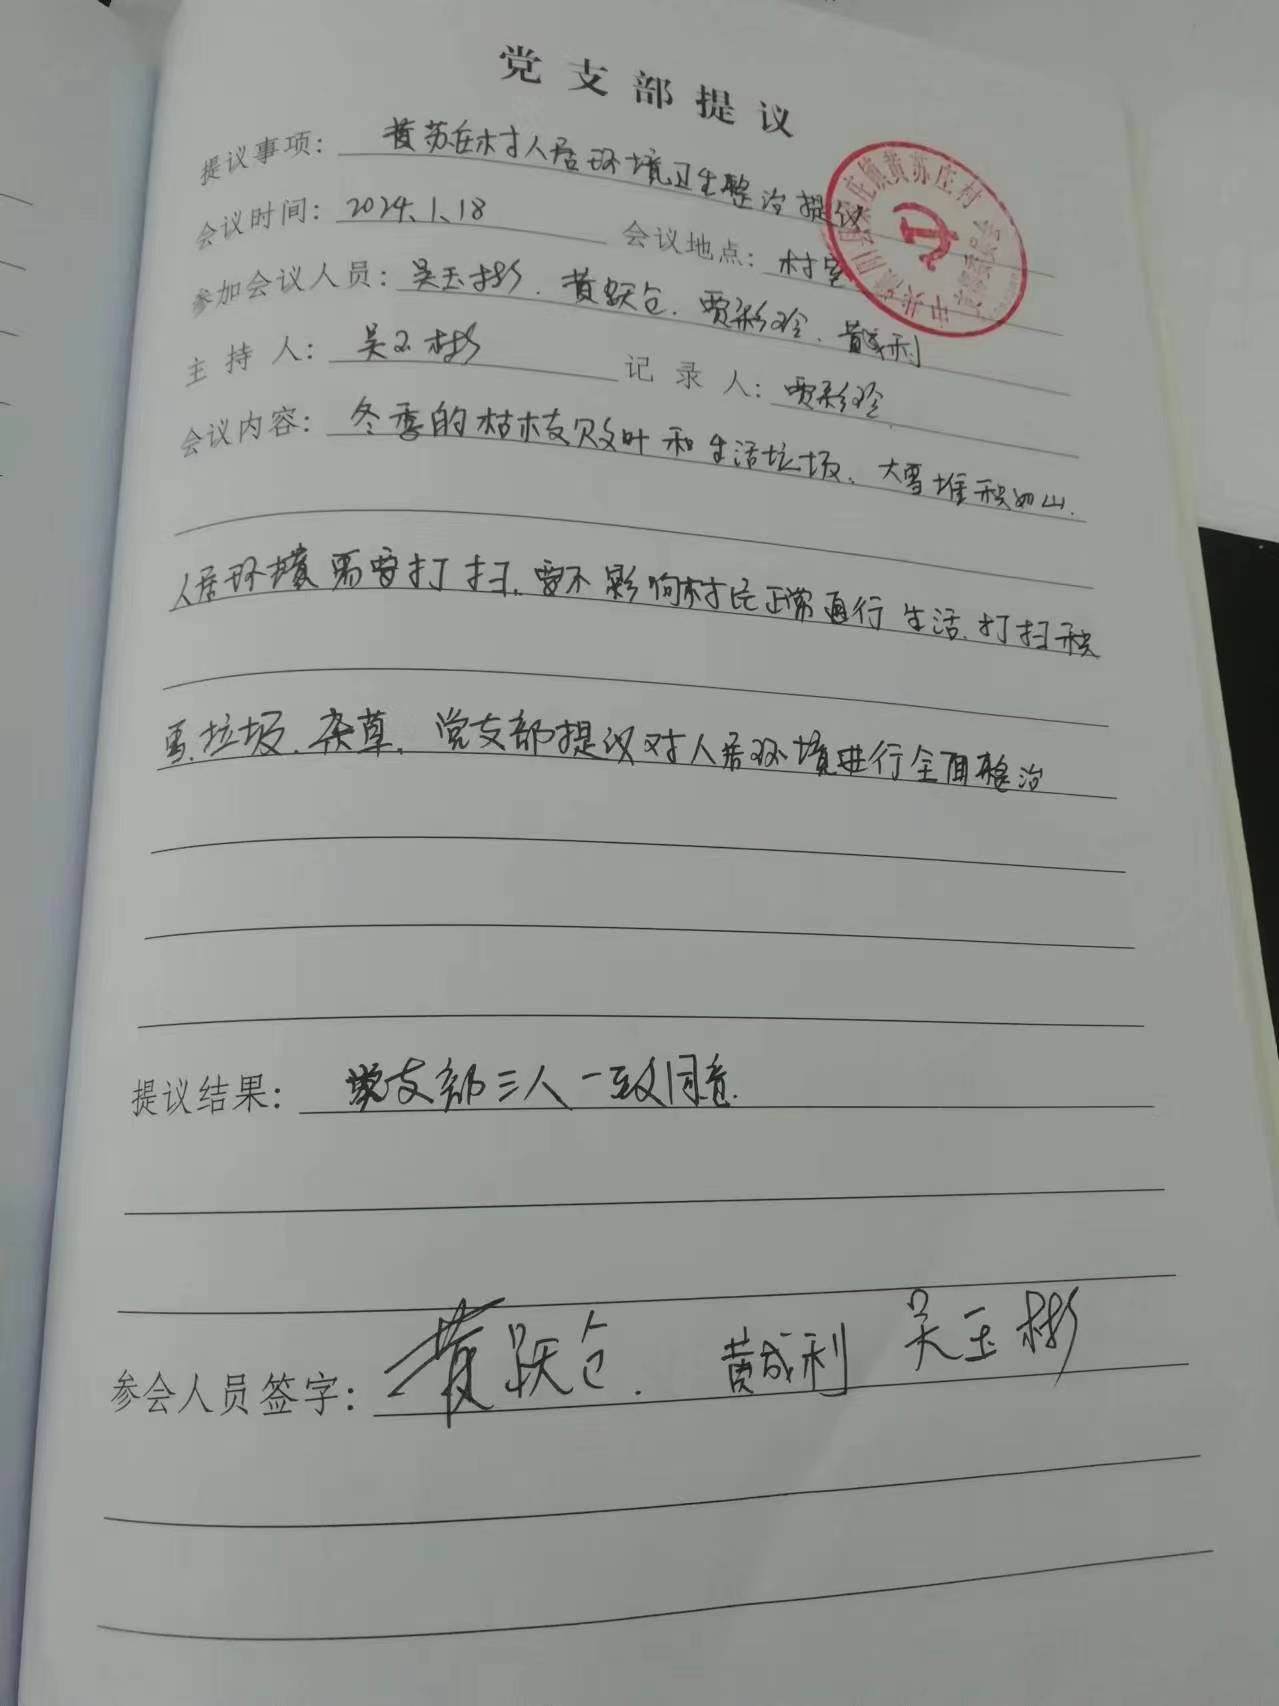 党支部提议
提议事项：黄苏庄村人居环境卫生整治提议
会议时间：2024.1.18 会议地点：村室
参加会议人员：吴玉彬、黄跃仓、贾彩玲、黄成利
主持人：吴玉彬 记录人：贾彩玲
会议内容：冬季的枯枝败叶和生活垃圾、大雪堆积如山.
人居环境需要打扫.要不影响村民正常通行生活.打扫积
雪.垃圾.杂草.党支部提议对人居环境进行全面整治
提议结果：党支部三人一致同意.
参会人员签字：黄跃仓. 黄成利 吴玉彬
黄苏庄村